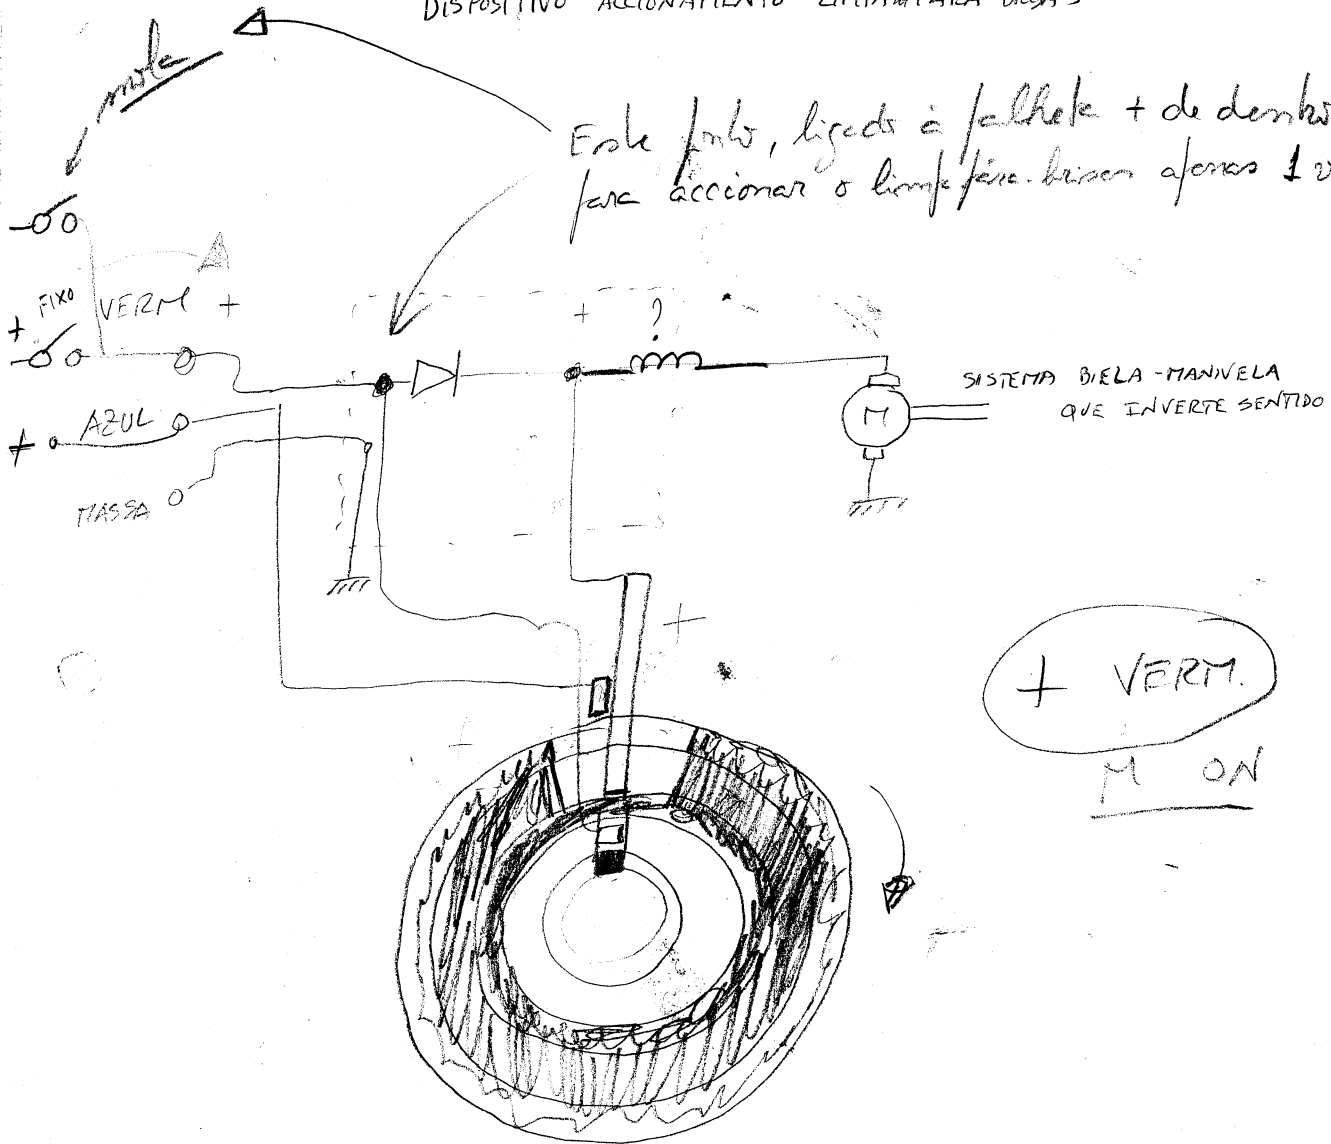 DISPOSITIVO ACCIONAMENTO
mola
Este ponto, ligado à palheta + de dentro
para accionar o limpa pára-brisas apenas 1 v
+ FIXO VERM +
+
?
AZUL
+
MASSA
M
SISTEMA BIELA-MANIVELA
QUE INVERTE SENTIDO
+
+
+ VERM.
M ON